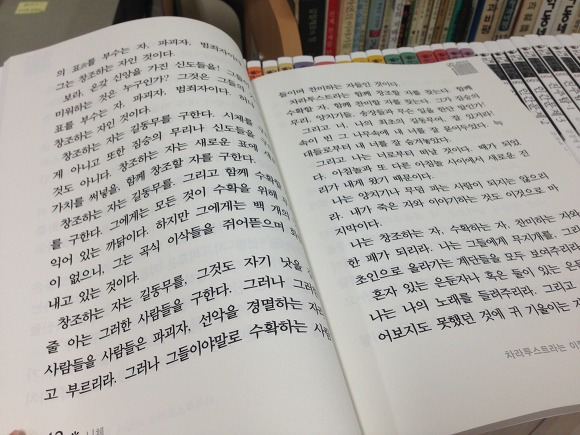 의 표를 부수는 자, 파괴자, 범죄자이
그는 창조하는 자인 것이다.
보라, 온갖 신앙을 가진 신도들을! 그들이
미워하는 것은 누구인가? 그것은 그들의
표를 부수는 자, 파괴자, 범죄자이다. 하지
창조하는 자인 것이다.
창조하는 자는 길동무를 구한다. 시체를
게 아니고 또한 짐승의 무리나 신도들을 구
것도 아니다. 창조하는 자는 새로운 표에 새
가치를 써넣을, 함께 창조할 자를 구한다.
창조하는 자는 길동무를, 그리고 함께 수확할
를 구한다. 그에게는 모든 것이 수확을 위해
익어 있는 까닭이다. 하지만 그에게는 백 개의
이 없으니, 그는 곡식 이삭들을 쥐어뜯으며 화
내고 있는 것이다.
창조하는 자는 길동무를, 그것도 자기 낫을
줄 아는 그러한 사람들을 구한다. 그러나 그러
사람들을 사람들은 파괴자, 선악을 경멸하는 자
고 부르리라. 그러나 그들이야말로 수확하는 사람
니체
들이며 찬미하는 자들인 것이다.
차라투스트라는 함께 창조할 자를 찾는다. 함께
수확할 자, 함께 찬미할 자를 찾는다. 그가 짐승의
무리, 양치기들, 송장들과 무슨 일을 한단 말인가!
그리고 너, 나의 최초의 길동무여, 잘 있거라!
속이 빈 그 나무속에 내 너를 잘 묻어두었다. 늑
대들로부터 내 너를 잘 숨겨놓았다.
그리고 나는 너로부터 떠날 것이다. 때가 되었
다. 아침놀과 또 다른 아침놀 사이에서 새로운 진
리가 내게 왔기 때문이다.
나는 양치기나 무덤 파는 사람이 되지는 않으리
라. 내가 죽은 자와 이야기하는 것도 이것으로 마
지막이다.
나는 창조하는 자, 수확하는 자, 찬미하는 자와
한 패가 되리라. 나는 그들에게 무지개를, 그
초인으로 올라가는 계단들을 모두 보여주리라
혼자 있는 은둔자나 혹은 둘이 있는 은둔
나는 나의 노래를 들려주리라. 그리고
어보지도 못했던 것에 귀 기울이는 자
차라투스트라는 이